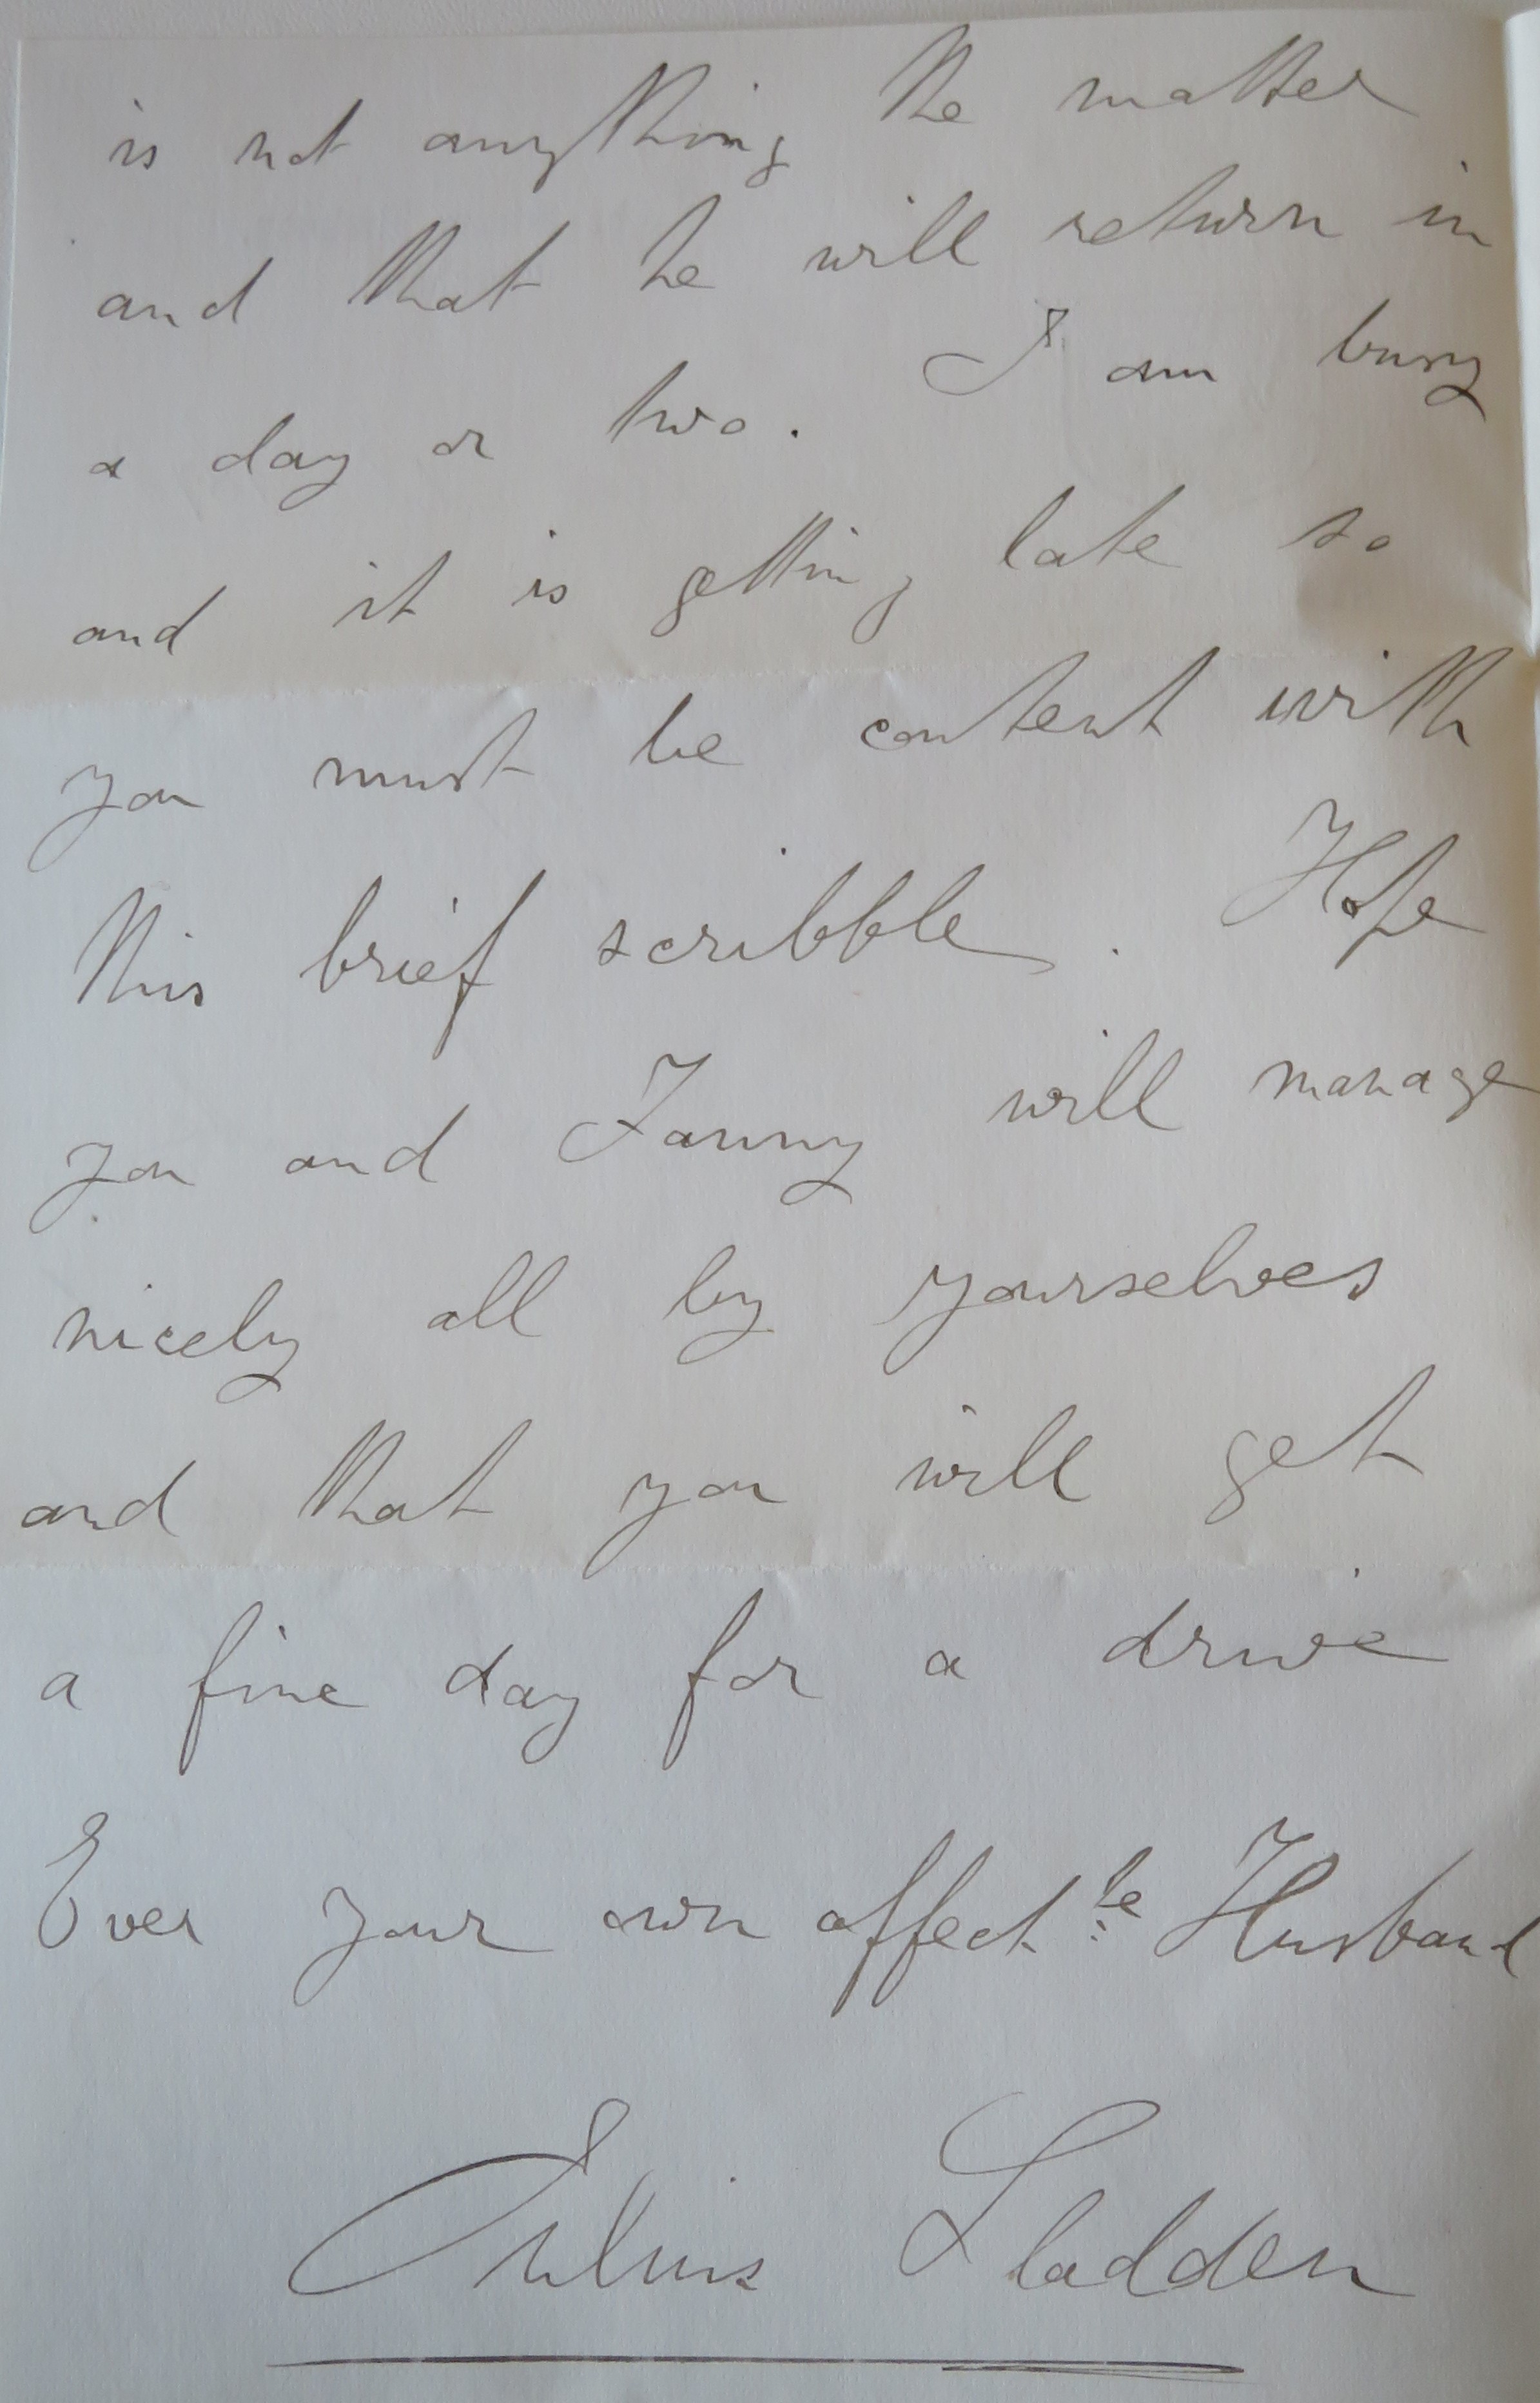 is not anything the matter
and that he will return in
a day or two. I am busy
and it is getting late so
you must be content with
this brief scribble. Hope
you and Fanny will manage
nicely all by yourselves
and that you will get
a fine day for a drive
Ever your own affect.le Husband
Julius Sladden